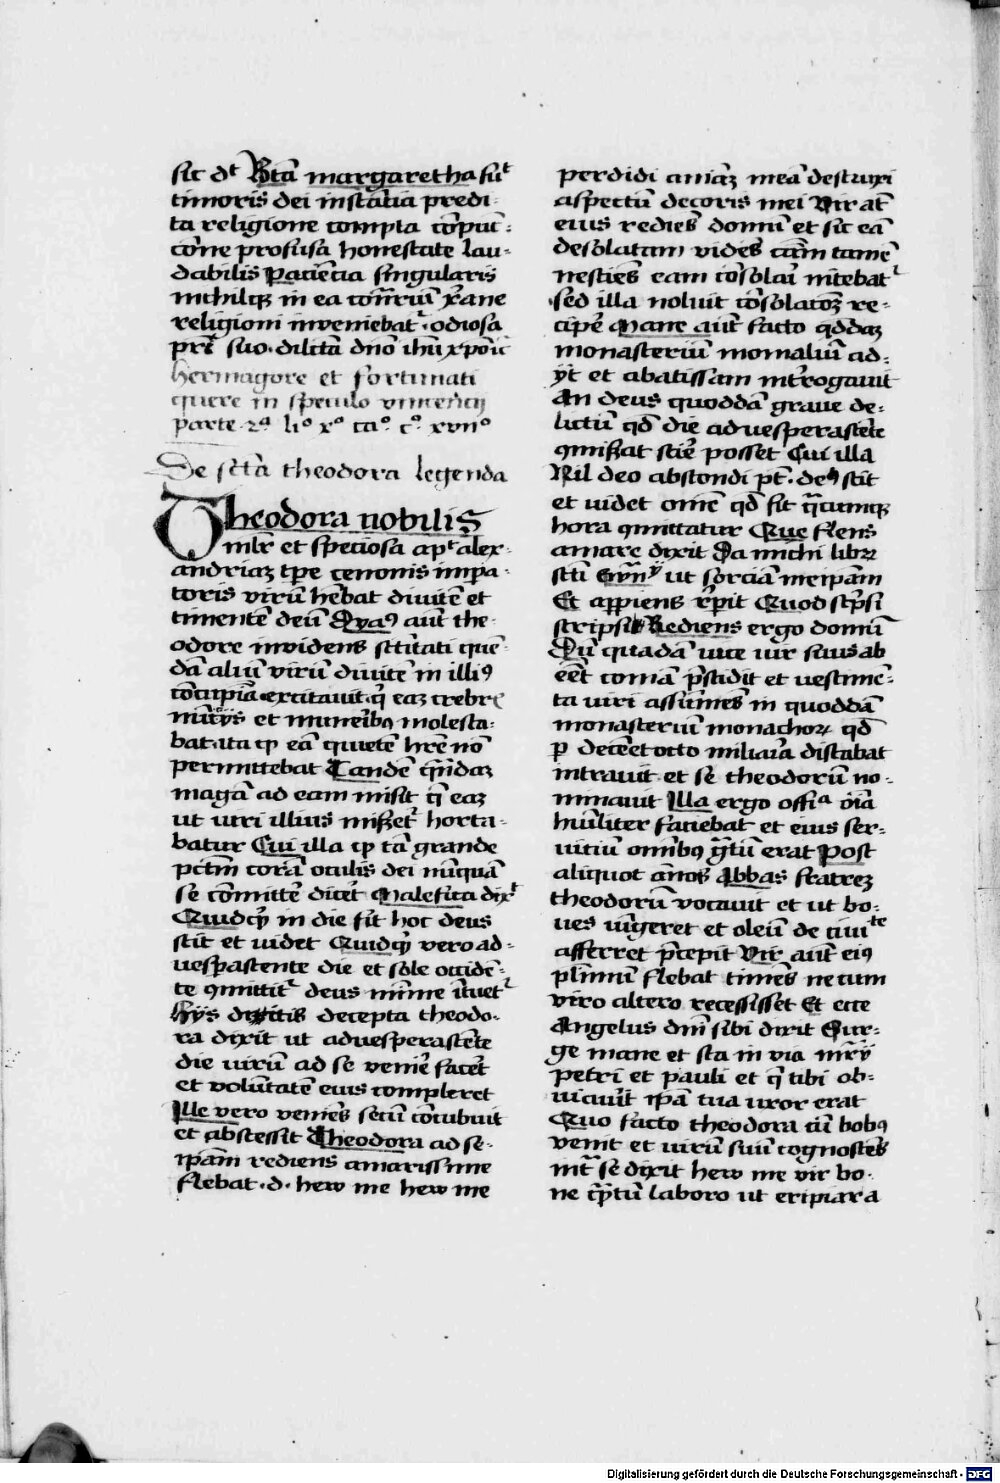 sic dt Bta margaretha fut
timoris dei instacia predi
ta religione compta copuc
coe profusa honestate lau
dabilis Paciecia singularis
nichilq in ea cotrariu xane
religioni inveniebatr odiosa
pri suo dilcta dno ihu xpo ic
hermagore et fortunati
quere in speculo vincencij
parte 2a lio xo cao co xviio
De scta theodora legenda
Theodora nobilis
mlr et speciosa aput alex
andriaz tpe cenonis impa
toris viru hebat divite et
timente deu Dyaq aut the
odore invidens sctitati que
da aliu viru divite in illiq
cocupia excitavit q eaz crebris
nucijs et munerib9 molesta
bat ita q ea quiete hre no
permittebat Tande quadaz
maga ad eam misit q eaz
ut viri illius miseretr horta
batur Cui illa q ta grande
pctm cora oculis dei nuqua
se comitte dicet Malefica dixt
Quidq in die fit hoc deus
scit et videt Quidq vero ad
vespascente die et sole occide
te 9mittitr deus minime ituetr
hijs dictis decepta theodo
ra dixit ut advesperascete
die viru ad se venire facet
et volutate eius compleret
Ille vero venies secu cocubuit
et abscessit Theodora ad se
ipam rediens amarissime
flebat d hew me hew me
perdidi aniaz mea destruxi
aspectu decoris mei Vir aut
eius redies domu et sic ea
desolatam vides cam tame
nescies eam cosolari nitebatr
sed illa noluit cosolacoz re
cipe Mane aut facto qddaz
monasteriu monialiu ad
yt et abatissam introgavit
An deus quodda grave de
lictu qd die advesperascete
9misserat scire posset Cui illa
Nil deo abscondi pt de9 scit
et videt ome qd fit qcumq
hora 9mittatur Que flens
amare dixit Da michi libr
scti Ewn ut sorcia meipam
Et appiens repit Quod scpsi
scripsi Rediens ergo domu
Du quada vice vir suus ab
eet coma pscidit et vestime
ta viri assumes in quodda
monasteriu monachor qd
p dece et octo miliaria distabat
intravit et se theodoru no
minavit Illa ergo offia oia
huliter faciebat et eius ser
vitiu omib9 gtu erat Post
aliquot anos Abbas fratrez
theodoru vocavit et ut bo
ves iungeret et oleu de civite
afferret pcepit Vir aut ei9
plimu flebat times ne cum
viro altero recessisset Et ecce
Angelus dni sibi dixit Sur
ge mane et sta in via mrij
petri et pauli et q tibi ob
viavit ipa tua uxor erat
Quo facto theodora cu bob9
venit et viru suu cognosces
intra se dixit hew me vir bo
ne qtu laboro ut eripiar a